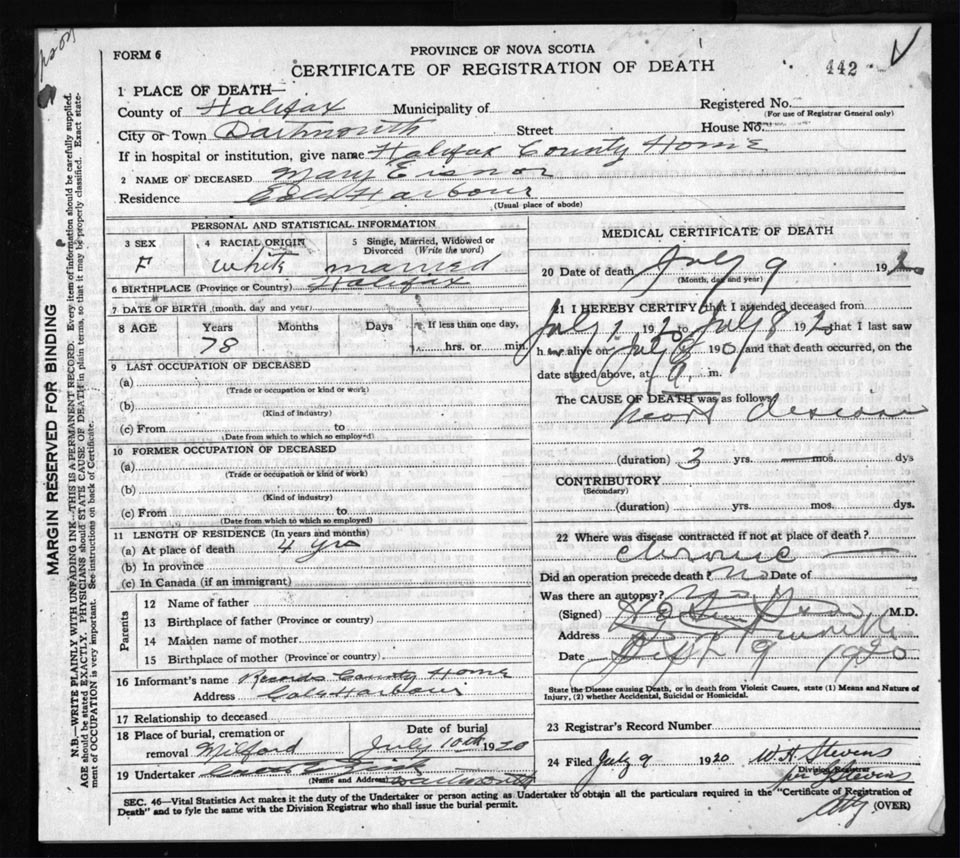 FORM 6
PROVINCE OF NOVA SCOTIA
CERTIFICATE OF REGISTRATION OF DEATH
442
1 PLACE OF DEATH—
County of Halifax Municipality of
Registered No.
(For use of Registrar General only)
City or Town Dartmouth Street House No.
If in hospital or institution, give name Halifax County Home
2 NAME OF DECEASED Mary Eisnor
Residence Harbour
(Usual place of abode)
PERSONAL AND STATISTICAL INFORMATION
3 SEX
F
4 RACIAL ORIGIN
White
5 Single, Married, Widowed or Divorced (Write the word)
married
6 BIRTHPLACE (Province or Country) Halifax
7 DATE OF BIRTH (month, day and year)
8 AGE Years Months Days If less than one day,
78 hrs. or min.
9 LAST OCCUPATION OF DECEASED
(a)
(Trade or occupation or kind or work)
(b)
(Kind of industry)
(c) From to
(Date from which to which so employed)
10 FORMER OCCUPATION OF DECEASED
(a)
(Trade or occupation or kind of work)
(b)
(Kind of industry)
(c) From to
(Date from which to which so employed)
11 LENGTH OF RESIDENCE (In years and months)
(a) At place of death 4 yrs
(b) In province
(c) In Canada (if an immigrant)
Parents
12 Name of father
13 Birthplace of father (Province or country)
14 Maiden name of mother
15 Birthplace of mother (Province or country)
16 Informant's name Records County Home
Address Cole Harbour
17 Relationship to deceased
18 Place of burial, cremation or removal Milford
Date of burial
July 10th 1920
19 Undertaker
(Name and Address) Dartmouth
MEDICAL CERTIFICATE OF DEATH
20 Date of death July 9 1920
(Month, day and year)
21 I HEREBY CERTIFY that I attended deceased from
July 1 1920 to July 8 1920 that I last saw
h alive on July 8 190, and that death occurred, on the
date stated above, at m.
The CAUSE OF DEATH was as follows
heart disease
(duration) 3 yrs. mos. dys
CONTRIBUTORY
(Secondary)
(duration) yrs. mos. dys.
22 Where was disease contracted if not at place of death?
chronic
Did an operation precede death? No Date of
Was there an autopsy? No
(Signed) M.D.
Address
Date 9 1920
State the Disease causing Death, or in death from Violent Causes, state (1) Means and Nature of Injury, (2) whether Accidental, Suicidal or Homicidal.
23 Registrar's Record Number
24 Filed July 9 1920 W. H. Stevens
Division Registrar
per Stevens
(OVER)
SEC. 46—Vital Statistics Act makes it the duty of the Undertaker or person acting as Undertaker to obtain all the particulars required in the "Certificate of Registration of
Death" and to fyle the same with the Division Registrar who shall issue the burial permit.
MARGIN RESERVED FOR BINDING
N.B.—WRITE PLAINLY WITH UNFADING INK—THIS IS A PERMANENT RECORD. Every item of information should be carefully supplied.
AGE should be stated EXACTLY. PHYSICIANS should STATE CAUSE OF DEATH in plain terms, so that it may be properly classified. Exact statement of OCCUPATION is very important. See instructions on back of Certificate.